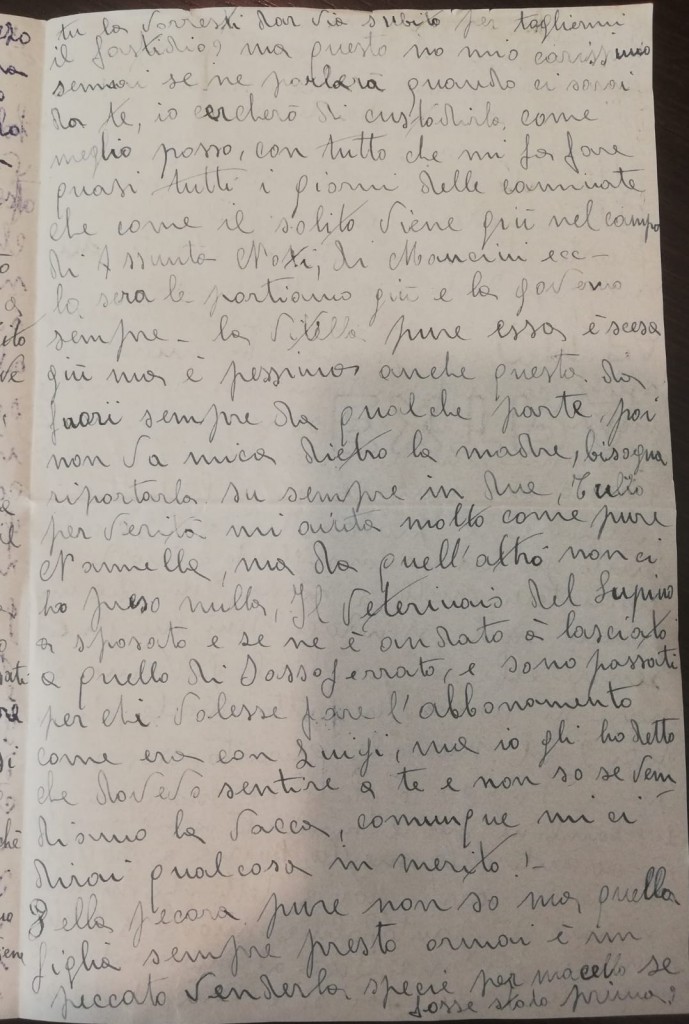 tu la vorresti dar via subito per togliermi
il fastidio? ma questo no mio carissimo
semmai se ne parlerà quando ci sarai
da te, io cercherò di custodirla come
meglio posso, con tutto che mi fa fare
quasi tutti i giorni delle camminate
che come il solito viene giù nel campo
di Assunta Noxi, di Mancini ecc-
la sera le portiamo giù e la governo
sempre - la vitella pure essa è scesa
giù ma è pessima anche questa da
fuori sempre da qualche parte, poi
non va mica dietro la madre, bisogna
riportarla su sempre in due, Tullio
per verità mi aiuta molto come pure
Nannella, ma da quell'altro non ci
ho preso nulla, Il Veterinaio del Lupino
a sposato e se ne è andato à lasciato
a quello di Sassoferrato, e sono passati
per chi volesse fare l'abbonamento
come era con Luigi, ma io gli ho detto
che dovevo sentire a te e non so se ven-
diamo la vacca, comunque mi ci
dirai qualcosa in merito! -
Della pecora pure non so ma quella
figlia sempre presto ormai è un
peccato venderla specie per macello se
fosse stato prima?